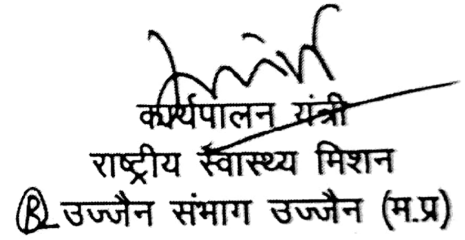 कार्यपालन यंत्री
राष्ट्रीय स्वास्थ्य मिशन
B उज्जैन संभाग उज्जैन (म.प्र)